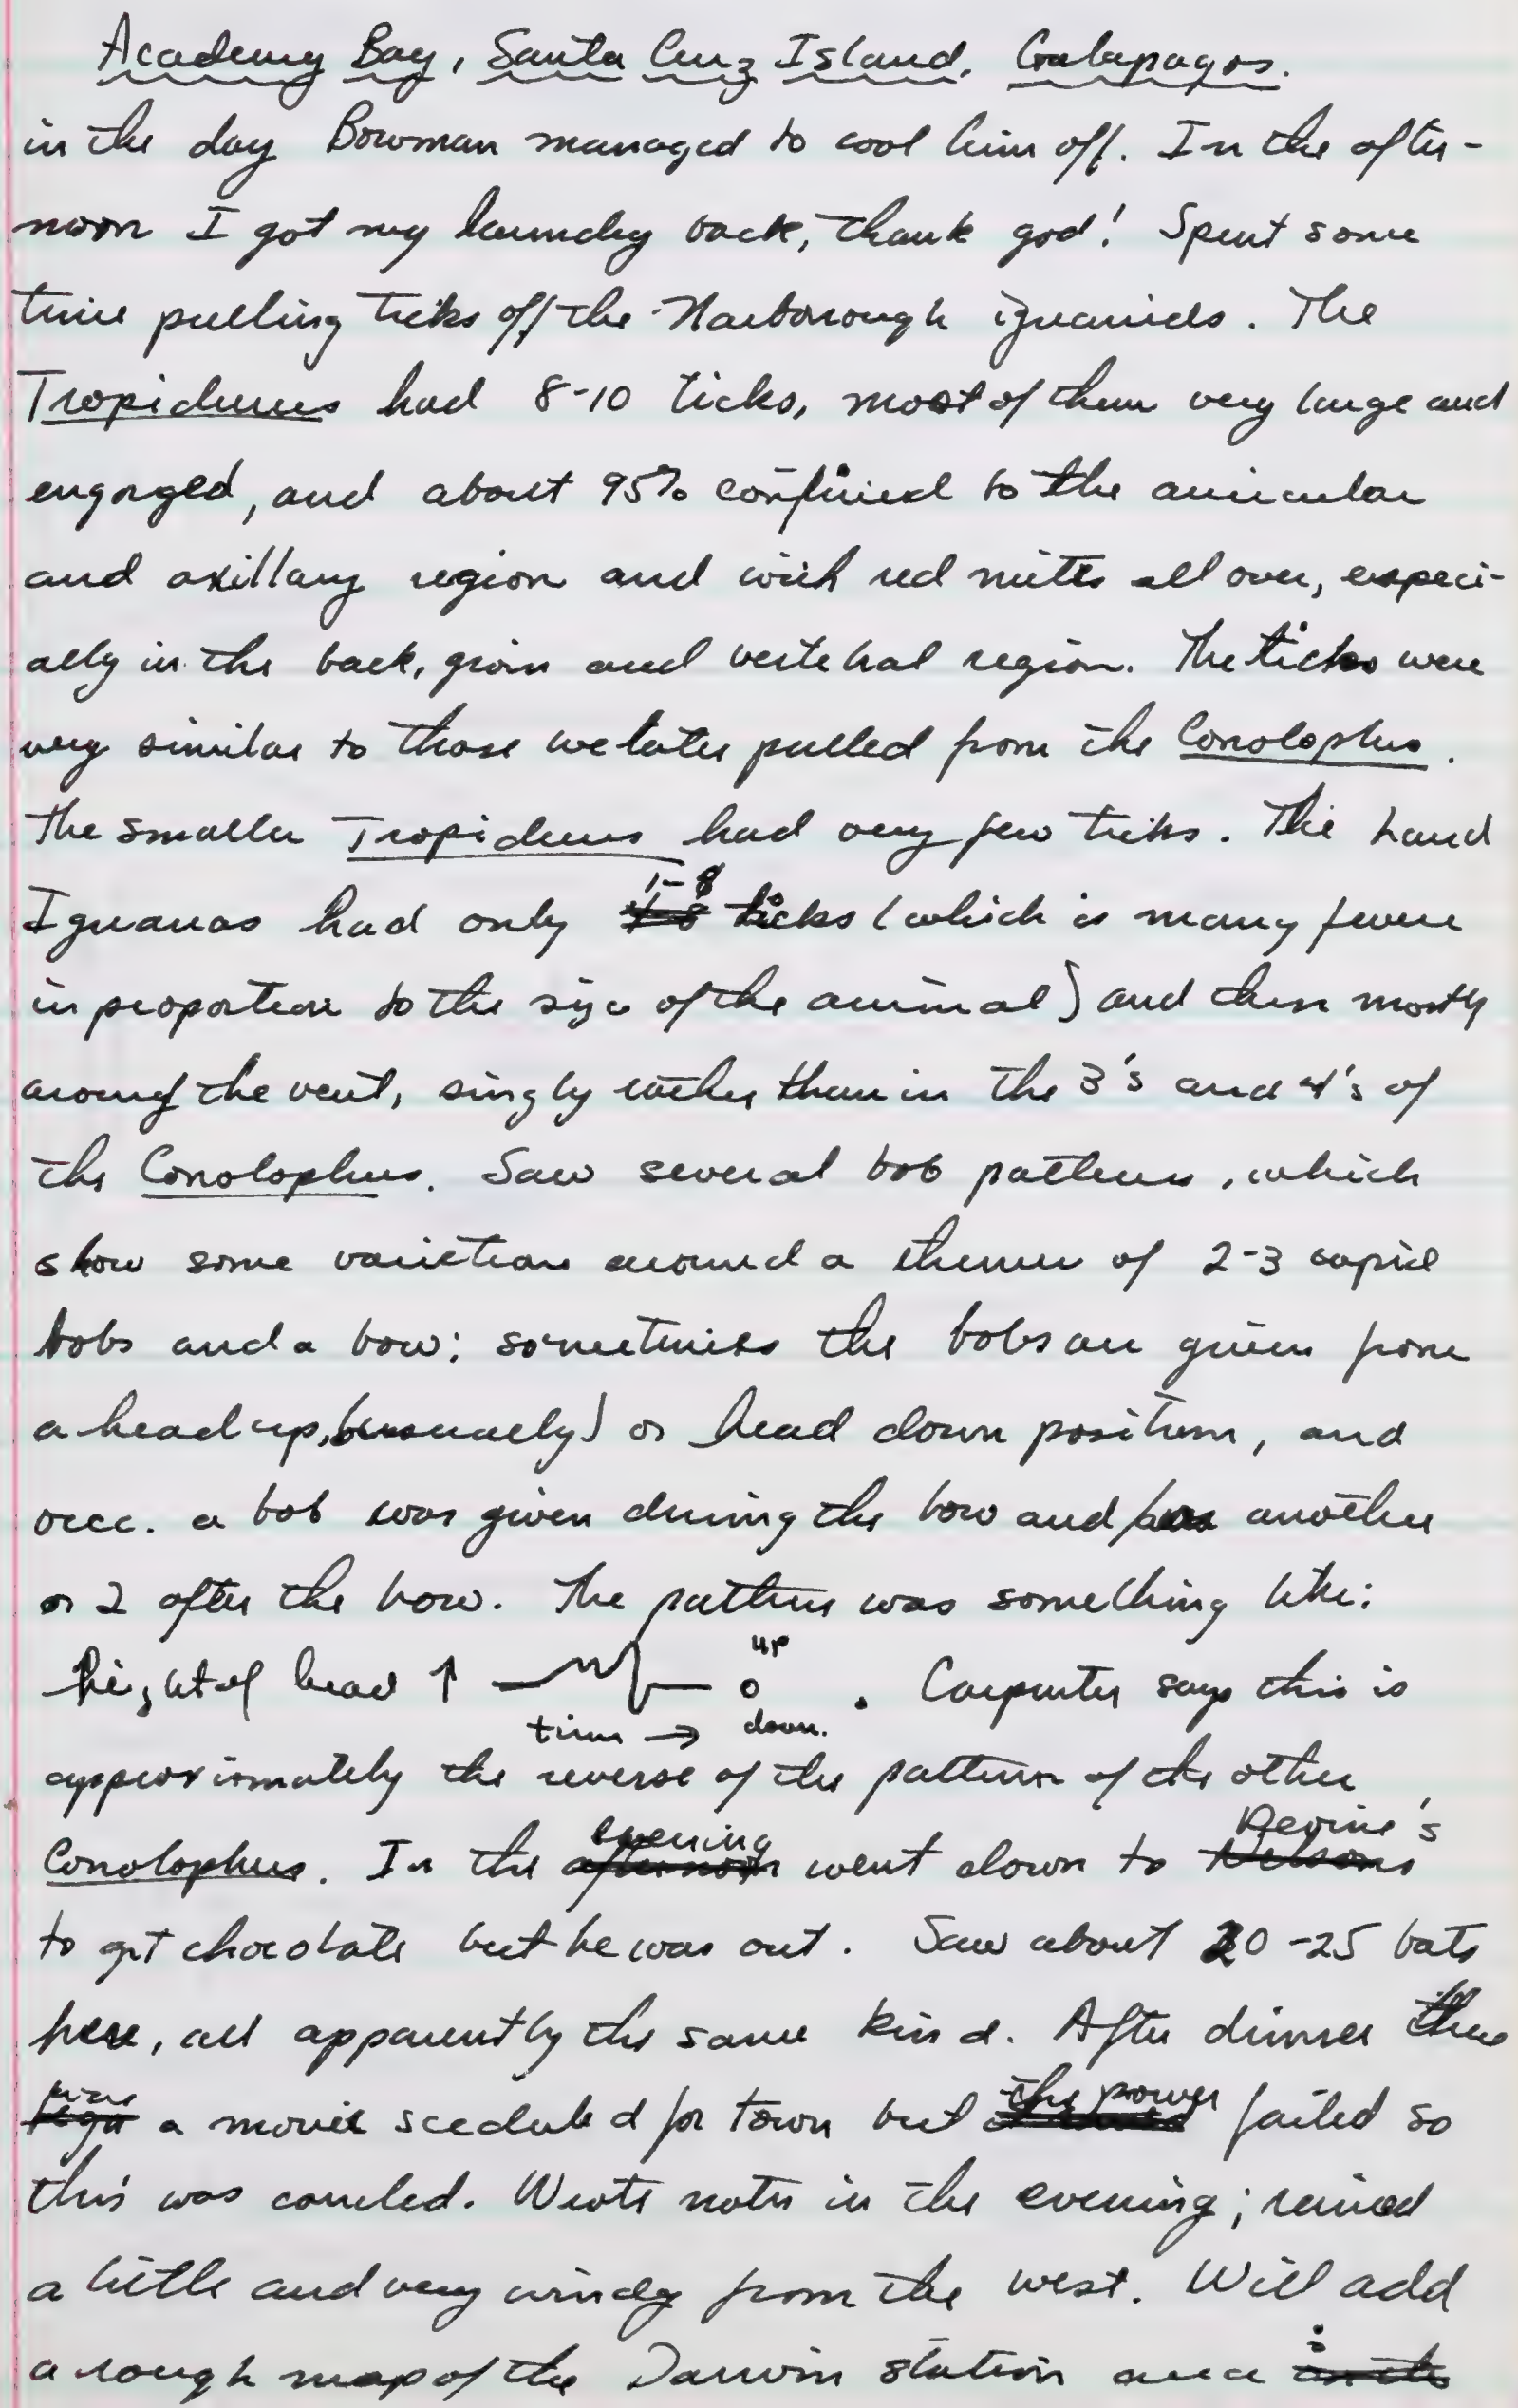 Academy Bay, Santa Cruz Island, Galapagos.
in the day Bowman managed to cool him off. In the after-
noon I got my laundry back, thank god! Spent some
time pulling ticks off the Narborough iguanids. The
Tropidurus had 8-10 ticks, most of them very large and
engorged, and about 95% confined to the auricular
and axillary region and with red mites all over, especi-
ally in the back, groin and vertebral region. The ticks were
very similar to those we later pulled from the Conolophus.
The smaller Tropidurus had very few ticks. The Land
Iguanas had only 1-8 ticks (which is many fewer
in proportion to the size of the animal) and then mostly
around the vent, singly rather than in the 3's and 4's of
the Conolophus. Saw several bob patterns, which
show some variation around a theme of 2-3 rapid
bobs and a bow; sometimes the bobs are given from
a head up, (usually) or head down position, and
occ. a bob was given during the bow and another
or 2 after the bow. The pattern was something like:
height of head ↑ up
0 . Carpenter says this is
time → down.
approximately the reverse of the pattern of the other
Conolophus. In the evening went down to Devine's
to get chocolate but he was out. Saw about 20-25 bats
here, all apparently the same kind. After dinner there
was a movie sceduled for town but the power failed so
this was canceled. Wrote notes in the evening; rained
a little and very windy from the west. Will add
a rough map of the Darwin station area